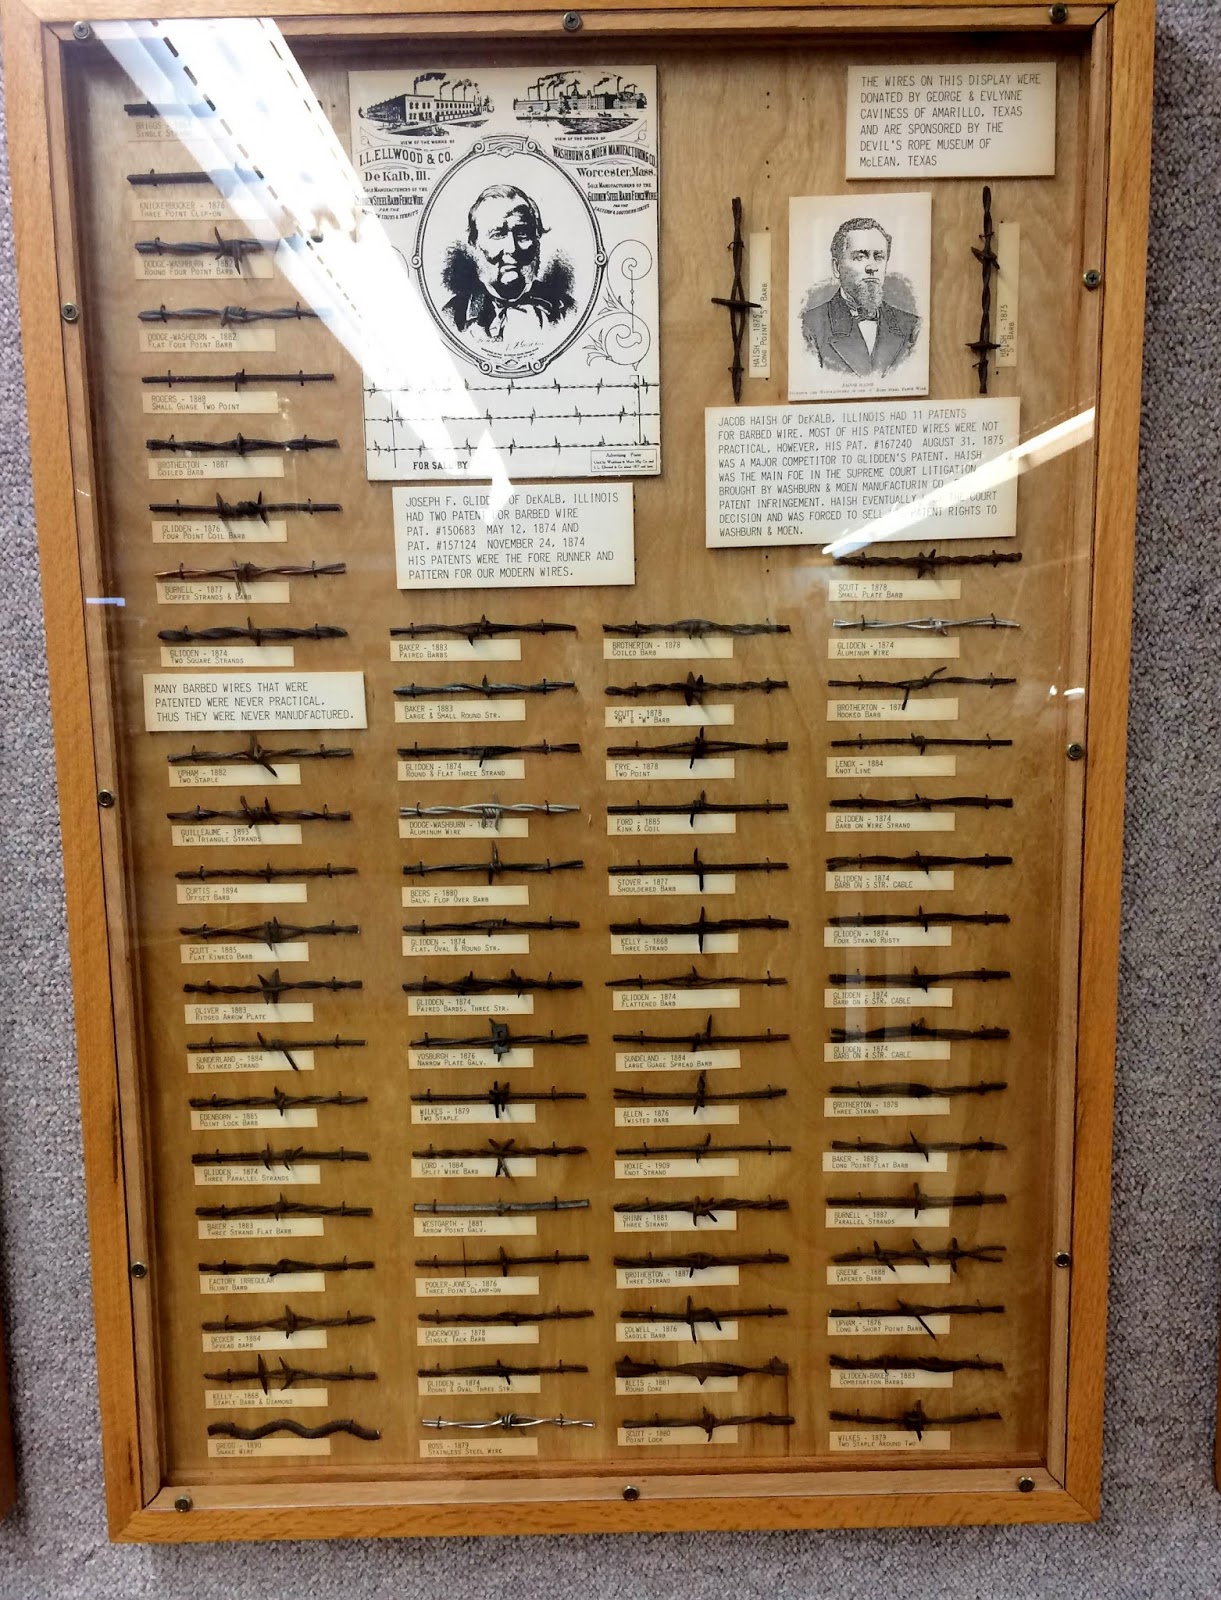 VIEW OF THE WORKS OF
I.L.ELLWOOD & CO.
De Kalb, Ill.
SOLE MANUFACTURERS OF THE
GLIDDEN STEEL BARB FENCE WIRE
FOR THE
VIEW OF THE WORKS OF
WASHBURN & MOEN MANUFACTURING CO.
Worcester, Mass.
SOLE MANUFACTURERS OF THE
GLIDDEN STEEL BARB FENCE WIRE
FOR THE
FOR SALE BY
Advertising Poster
THE WIRES ON THIS DISPLAY WERE
DONATED BY GEORGE & EVLYNNE
CAVINESS OF AMARILLO, TEXAS
AND ARE SPONSORED BY THE
DEVIL'S ROPE MUSEUM OF
McLEAN, TEXAS
HAISH - 1875
LONG POINT "S" BARB
JACOB HAISH
HAISH - 1875
"S" BARB
JACOB HAISH OF DEKALB, ILLINOIS HAD 11 PATENTS
FOR BARBED WIRE. MOST OF HIS PATENTED WIRES WERE NOT
PRACTICAL. HOWEVER, HIS PAT. #167240 AUGUST 31, 1875
WAS A MAJOR COMPETITOR TO GLIDDEN'S PATENT. HAISH
WAS THE MAIN FOE IN THE SUPREME COURT LITIGATION
BROUGHT BY WASHBURN & MOEN MANUFACTURIN CO.
PATENT INFRINGEMENT. HAISH EVENTUALLY COURT
DECISION AND WAS FORCED TO SELL PATENT RIGHTS TO
WASHBURN & MOEN.
JOSEPH F. GLIDDEN OF DEKALB, ILLINOIS
HAD TWO PATENT FOR BARBED WIRE
PAT. #150683 MAY 12, 1874 AND
PAT. #157124 NOVEMBER 24, 1874
HIS PATENTS WERE THE FORE RUNNER AND
PATTERN FOR OUR MODERN WIRES.
BRIGGS
SINGLE
KNICKERBOCKER - 1876
THREE POINT CLIP-ON
DODGE-WASHBURN - 1882
ROUND FOUR POINT BARB
DODGE-WASHBURN - 1882
FLAT FOUR POINT BARB
ROGERS - 1888
SMALL GUAGE TWO POINT
BROTHERTON - 1887
COILED BARB
GLIDDEN - 1876
FOUR POINT COIL BARB
BURNELL - 1877
COPPER STRANDS & BARB
GLIDDEN - 1874
TWO SQUARE STRANDS
MANY BARBED WIRES THAT WERE
PATENTED WERE NEVER PRACTICAL,
THUS THEY WERE NEVER MANUDFACTURED.
UPHAM - 1882
TWO STAPLE
GUILLEAUME - 1893
TWO TRIANGLE STRANDS
CURTIS - 1894
OFFSET BARB
SCUTT - 1885
FLAT KINKED BARB
OLIVER - 1883
RIDGED ARROW PLATE
SUNDERLAND - 1884
NO KINKED STRAND
EDENBORN - 1885
POINT LOCK BARB
GLIDDEN - 1874
THREE PARALLEL STRANDS
BAKER - 1883
THREE STRAND FLAT BARB
FACTORY IRREGULAR
BLUNT BARB
DECKER - 1884
SPREAD BARB
KELLY - 1868
STAPLE BARB & DIAMOND
GREGG - 1890
SNAKE WIRE
BAKER - 1883
PAIRED BARBS
BAKER - 1883
LARGE & SMALL ROUND STR.
GLIDDEN - 1874
ROUND & FLAT THREE STRAND
DODGE-WASHBURN - 1882
ALUMINUM WIRE
BEERS - 1880
GALV. FLOP OVER BARB
GLIDDEN - 1874
FLAT, OVAL & ROUND STR.
GLIDDEN - 1874
PAIRED BARBS, THREE STR.
VOSBURGH - 1876
NARROW PLATE GALV.
WILKES - 1879
TWO STAPLE
LORD - 1884
SPLIT WIRE BARB
WESTGARTH - 1881
ARROW POINT GALV.
POOLER-JONES - 1876
THREE POINT CLAMP-ON
UNDERWOOD - 1878
SINGLE TACK BARB
GLIDDEN - 1874
ROUND & OVAL THREE STR.
BOSS - 1879
STAINLESS STEEL WIRE
BROTHERTON - 1878
COILED BARB
SCUTT - 1878
"M" & "W" BARB
FRYE - 1878
TWO POINT
FORD - 1885
KINK & COIL
STOVER - 1877
SHOULDERED BARB
KELLY - 1868
THREE STRAND
GLIDDEN - 1874
FLATTENED BARB
SUNDELAND - 1884
LARGE GUAGE SPREAD BARB
ALLEN - 1876
TWISTED BARB
HOXIE - 1909
KNOT STRAND
SHINN - 1881
THREE STRAND
BROTHERTON - 1887
THREE STRAND
COLWELL - 1876
SADDLE BARB
ALLIS - 1881
ROUND CORE
SCUTT - 1880
POINT LOCK
SCUTT - 1878
SMALL PLATE BARB
GLIDDEN - 1874
ALUMINUM WIRE
BROTHERTON -
HOOKED BARB
LENOX - 1884
KNOT LINE
GLIDDEN - 1874
BARB ON WIRE STRAND
GLIDDEN - 1874
BARB ON 5 STR. CABLE
GLIDDEN - 1874
FOUR STRAND RUSTY
GLIDDEN - 1874
BARB ON 6 STR. CABLE
GLIDDEN - 1874
BARB ON 4 STR. CABLE
BROTHERTON - 1878
THREE STRAND
BAKER - 1883
LONG POINT FLAT BARB
BURNELL - 1887
PARALLEL STRANDS
GREENE - 1888
TAPERED BARB
UPHAM - 1876
LONG & SHORT POINT BARB
GLIDDEN-BAKER - 1883
COMBINATION BARBS
WILKES - 1879
TWO STAPLE AROUND TWO